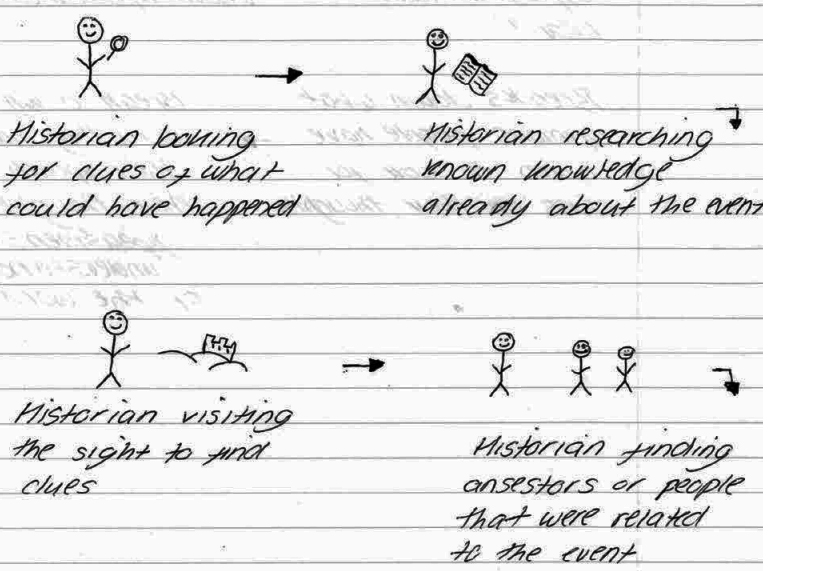 Historian looking
for clues of what
could have happened
Historian researching
known knowledge
already about the event
Historian visiting
the sight to find
clues
Historian finding
ansestors or people
that were related
to the event